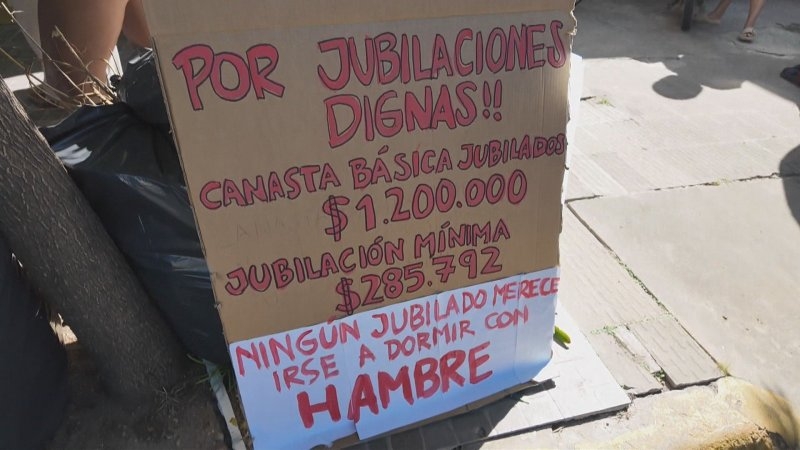 POR JUBILACIONES
DIGNAS!!
CANASTA BÁSICA JUBILADOS
$1.200.000
JUBILACIÓN MÍNIMA
$285.792
NINGÚN JUBILADO MERECE
IRSE A DORMIR CON
HAMBRE